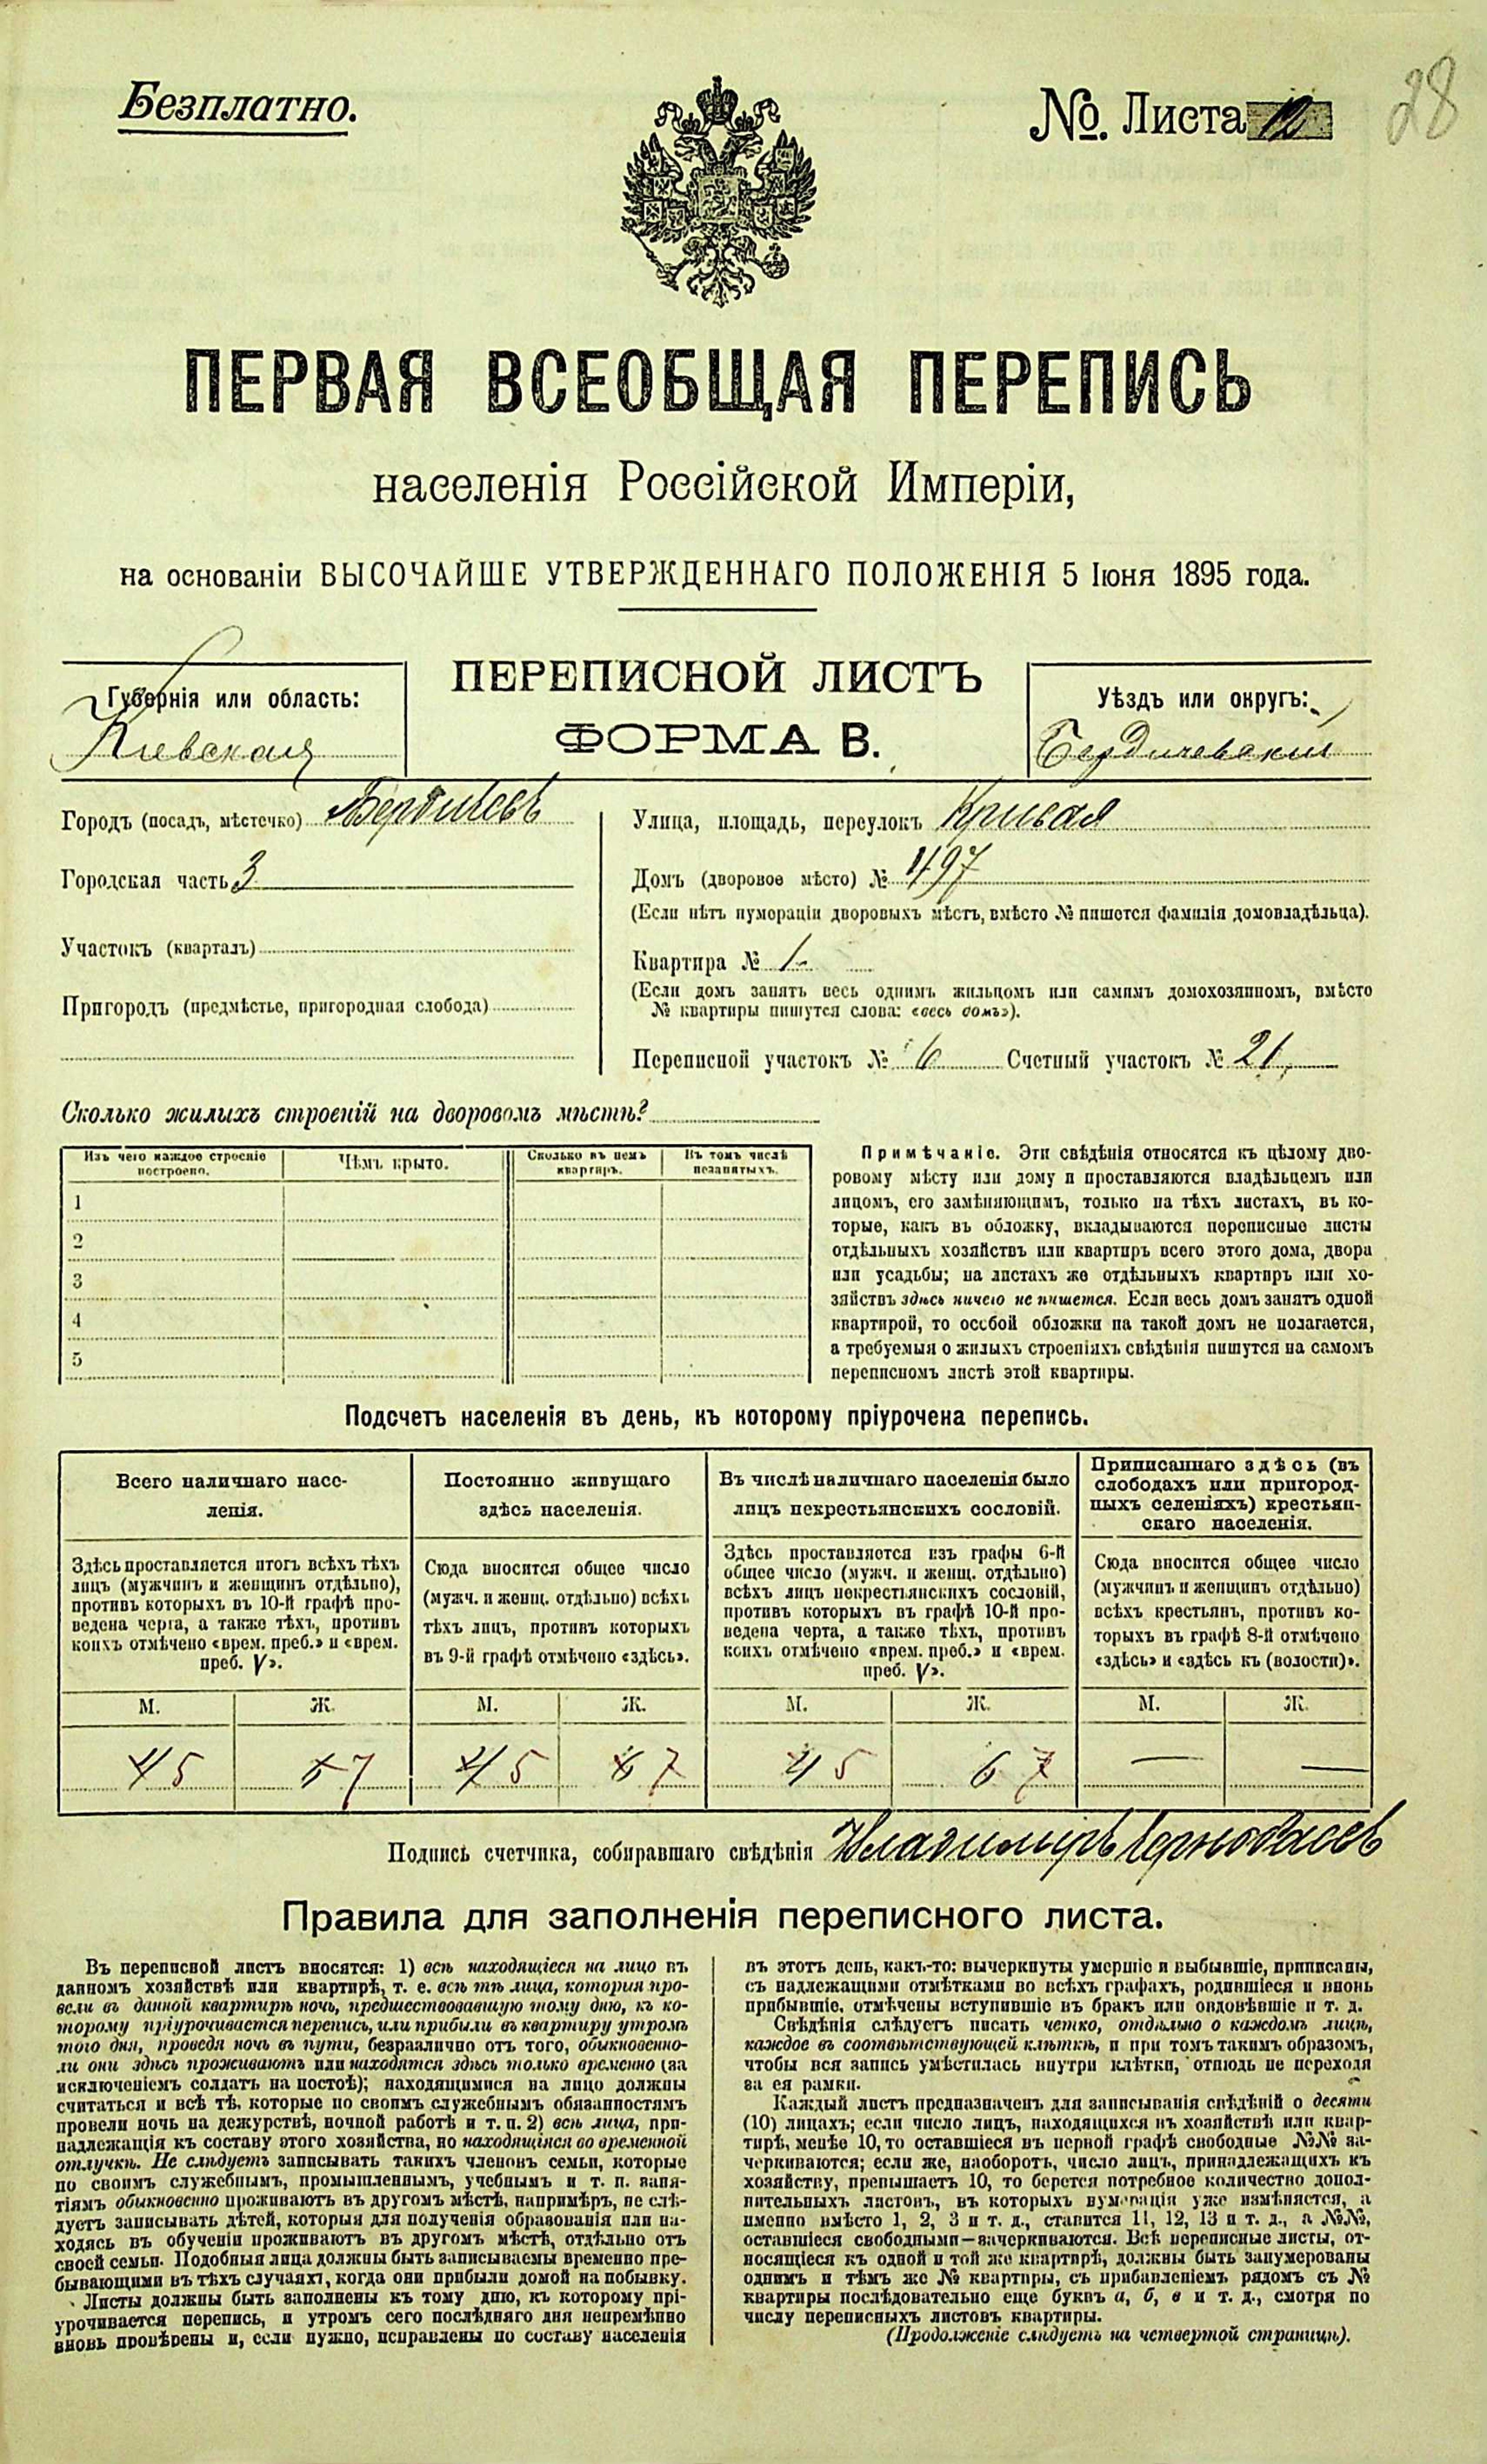 Безплатно.
№. Листа 12
28
ПЕРВАЯ ВСЕОБЩАЯ ПЕРЕПИСЬ
населенія Россійской Имперіи,
на основаніи ВЫСОЧАЙШЕ УТВЕРЖДЕННАГО ПОЛОЖЕНІЯ 5 Іюня 1895 года.
Губернія или область:
Кіевская
ПЕРЕПИСНОЙ ЛИСТЪ
ФОРМА В.
Уѣздъ или округъ:
Бердичевскій
Городъ (посадъ, мѣстечко) Бердичевъ
Городская часть 3
Участокъ (кварталъ)
Пригородъ (предмѣстье, пригородная слобода)
Улица, площадь, переулокъ Кривая
Домъ (дворовое мѣсто) № 497
(Если нѣтъ нумораціи дворовыхъ мѣстъ, вмѣсто № пишотся фамилія домовладѣльца).
Квартира № 1
(Если домъ занятъ весь однимъ жильцомъ или самимъ домохозяиномъ, вмѣсто
№ квартиры пишутся слова: «весь домъ»).
Переписной участокъ № 6 Счетный участокъ № 21
Сколько жилыхъ строеній на дворовомъ мѣстѣ?
Изъ чего каждое строеніе
построено.
Чѣмъ крыто.
Сколько въ немъ
квартиръ.
Въ томъ числѣ
незанятыхъ.
1
2
3
4
5
Примѣчаніе. Эти свѣдѣнія относятся къ цѣлому дво-
ровому мѣсту или дому и проставляются владѣльцемъ или
лицомъ, его замѣняющимъ, только на тѣхъ листахъ, въ ко-
торые, какъ въ обложку, вкладываются переписные листы
отдѣльныхъ хозяйствъ или квартиръ всего этого дома, двора
или усадьбы; на листахъ же отдѣльныхъ квартиръ или хо-
зяйствъ здѣсь ничего не пишется. Если весь домъ занятъ одной
квартирой, то особой обложки на такой домъ не полагается,
а требуемыя о жилыхъ строеніяхъ свѣдѣнія пишутся на самомъ
переписномъ листѣ этой квартиры.
Подсчетъ населенія въ день, къ которому пріурочена перепись.
Всего наличнаго насе-
ленія.
Постоянно живущаго
здѣсь населенія.
Въ числѣ наличнаго населенія было
лицъ некрестьянскихъ сословій.
Приписаннаго здѣсь (въ
слободахъ или пригород-
ныхъ селеніяхъ) крестьян-
скаго населенія.
Здѣсь проставляется итогъ всѣхъ тѣхъ
лицъ (мужчинъ и женщинъ отдѣльно),
противъ которыхъ въ 10-й графѣ про-
ведена черта, а также тѣхъ, противъ
коихъ отмѣчено «врем. преб.» и «врем.
преб. V».
Сюда вносится общее число
(мужч. и женщ. отдѣльно) всѣхъ
тѣхъ лицъ, противъ которыхъ
въ 9-й графѣ отмѣчено «здѣсь».
Здѣсь проставляется изъ графы 6-й
общее число (мужч. и женщ. отдѣльно)
всѣхъ лицъ некрестьянскихъ сословій,
противъ которыхъ въ графѣ 10-й про-
ведена черта, а также тѣхъ, противъ
коихъ отмѣчено «врем. преб.» и «врем.
преб. V».
Сюда вносится общее число
(мужчинъ и женщинъ отдѣльно)
всѣхъ крестьянъ, противъ ко-
торыхъ въ графѣ 8-й отмѣчено
«здѣсь» и «здѣсь къ (волости)».
М. Ж. М. Ж. М. Ж. М. Ж.
5 7 5 7 5 7 — —
Подпись счетчика, собиравшаго свѣдѣнія Владимиръ
Правила для заполненія переписного листа.
Въ переписной листъ вносятся: 1) всѣ находящіеся на лицо въ
данномъ хозяйствѣ или квартирѣ, т. е. всѣ тѣ лица, которыя про-
вели въ данной квартирѣ ночь, предшествовавшую тому дню, къ ко-
торому пріурочивается перепись, или прибыли въ квартиру утромъ
того дня, проведя ночь въ пути, безразлично отъ того, обыкновенно-
ли они здѣсь проживаютъ или находятся здѣсь только временно (за
исключеніемъ солдатъ на постоѣ); находящимися на лицо должны
считаться и всѣ тѣ, которые по своимъ служебнымъ обязанностямъ
провели ночь на дежурствѣ, ночной работѣ и т. п. 2) всѣ лица, при-
надлежащія къ составу этого хозяйства, но находящіяся во временной
отлучкѣ. Не слѣдуетъ записывать такихъ членовъ семьи, которые
по своимъ служебнымъ, промышленнымъ, учебнымъ и т. п. заня-
тіямъ обыкновенно проживаютъ въ другомъ мѣстѣ, напримѣръ, не слѣ-
дуетъ записывать дѣтей, которыя для полученія образованія или на-
ходясь въ обученіи проживаютъ въ другомъ мѣстѣ, отдѣльно отъ
своей семьи. Подобныя лица должны быть записываемы временно пре-
бывающими въ тѣхъ случаяхъ, когда они прибыли домой на побывку.
Листы должны быть заполнены къ тому дню, къ которому прі-
урочивается перепись, и утромъ сего послѣдняго дня непремѣнно
вновь провѣрены и, если нужно, исправлены по составу населенія
въ этотъ день, какъ-то: вычеркнуты умершіе и выбывшіе, приписаны,
съ надлежащими отмѣтками во всѣхъ графахъ, родившіеся и вновь
прибывшіе, отмѣчены вступившіе въ бракъ или овдовѣвшіе и т. д.
Свѣдѣнія слѣдуетъ писать четко, отдѣльно о каждомъ лицѣ,
каждое въ соотвѣтствующей клѣткѣ, и при томъ такимъ образомъ,
чтобы вся запись умѣстилась внутри клѣтки, отнюдь не переходя
за ея рамки.
Каждый листъ предназначенъ для записыванія свѣдѣній о десяти
(10) лицахъ; если число лицъ, находящихся въ хозяйствѣ или квар-
тирѣ, менѣе 10, то оставшіеся въ первой графѣ свободные №№ за-
черкиваются; если же, наоборотъ, число лицъ, принадлежащихъ къ
хозяйству, превышаетъ 10, то берется потребное количество допол-
нительныхъ листовъ, въ которыхъ нумерація уже измѣняется, а
именно вмѣсто 1, 2, 3 и т. д., ставится 11, 12, 13 и т. д., а №№,
оставшіеся свободными—зачеркиваются. Всѣ переписные листы, от-
носящіеся къ одной и той же квартирѣ, должны быть занумерованы
однимъ и тѣмъ же № квартиры, съ прибавленіемъ рядомъ съ №
квартиры послѣдовательно еще буквъ а, б, в и т. д., смотря по
числу переписныхъ листовъ квартиры.
(Продолженіе слѣдуетъ на четвертой страницѣ).